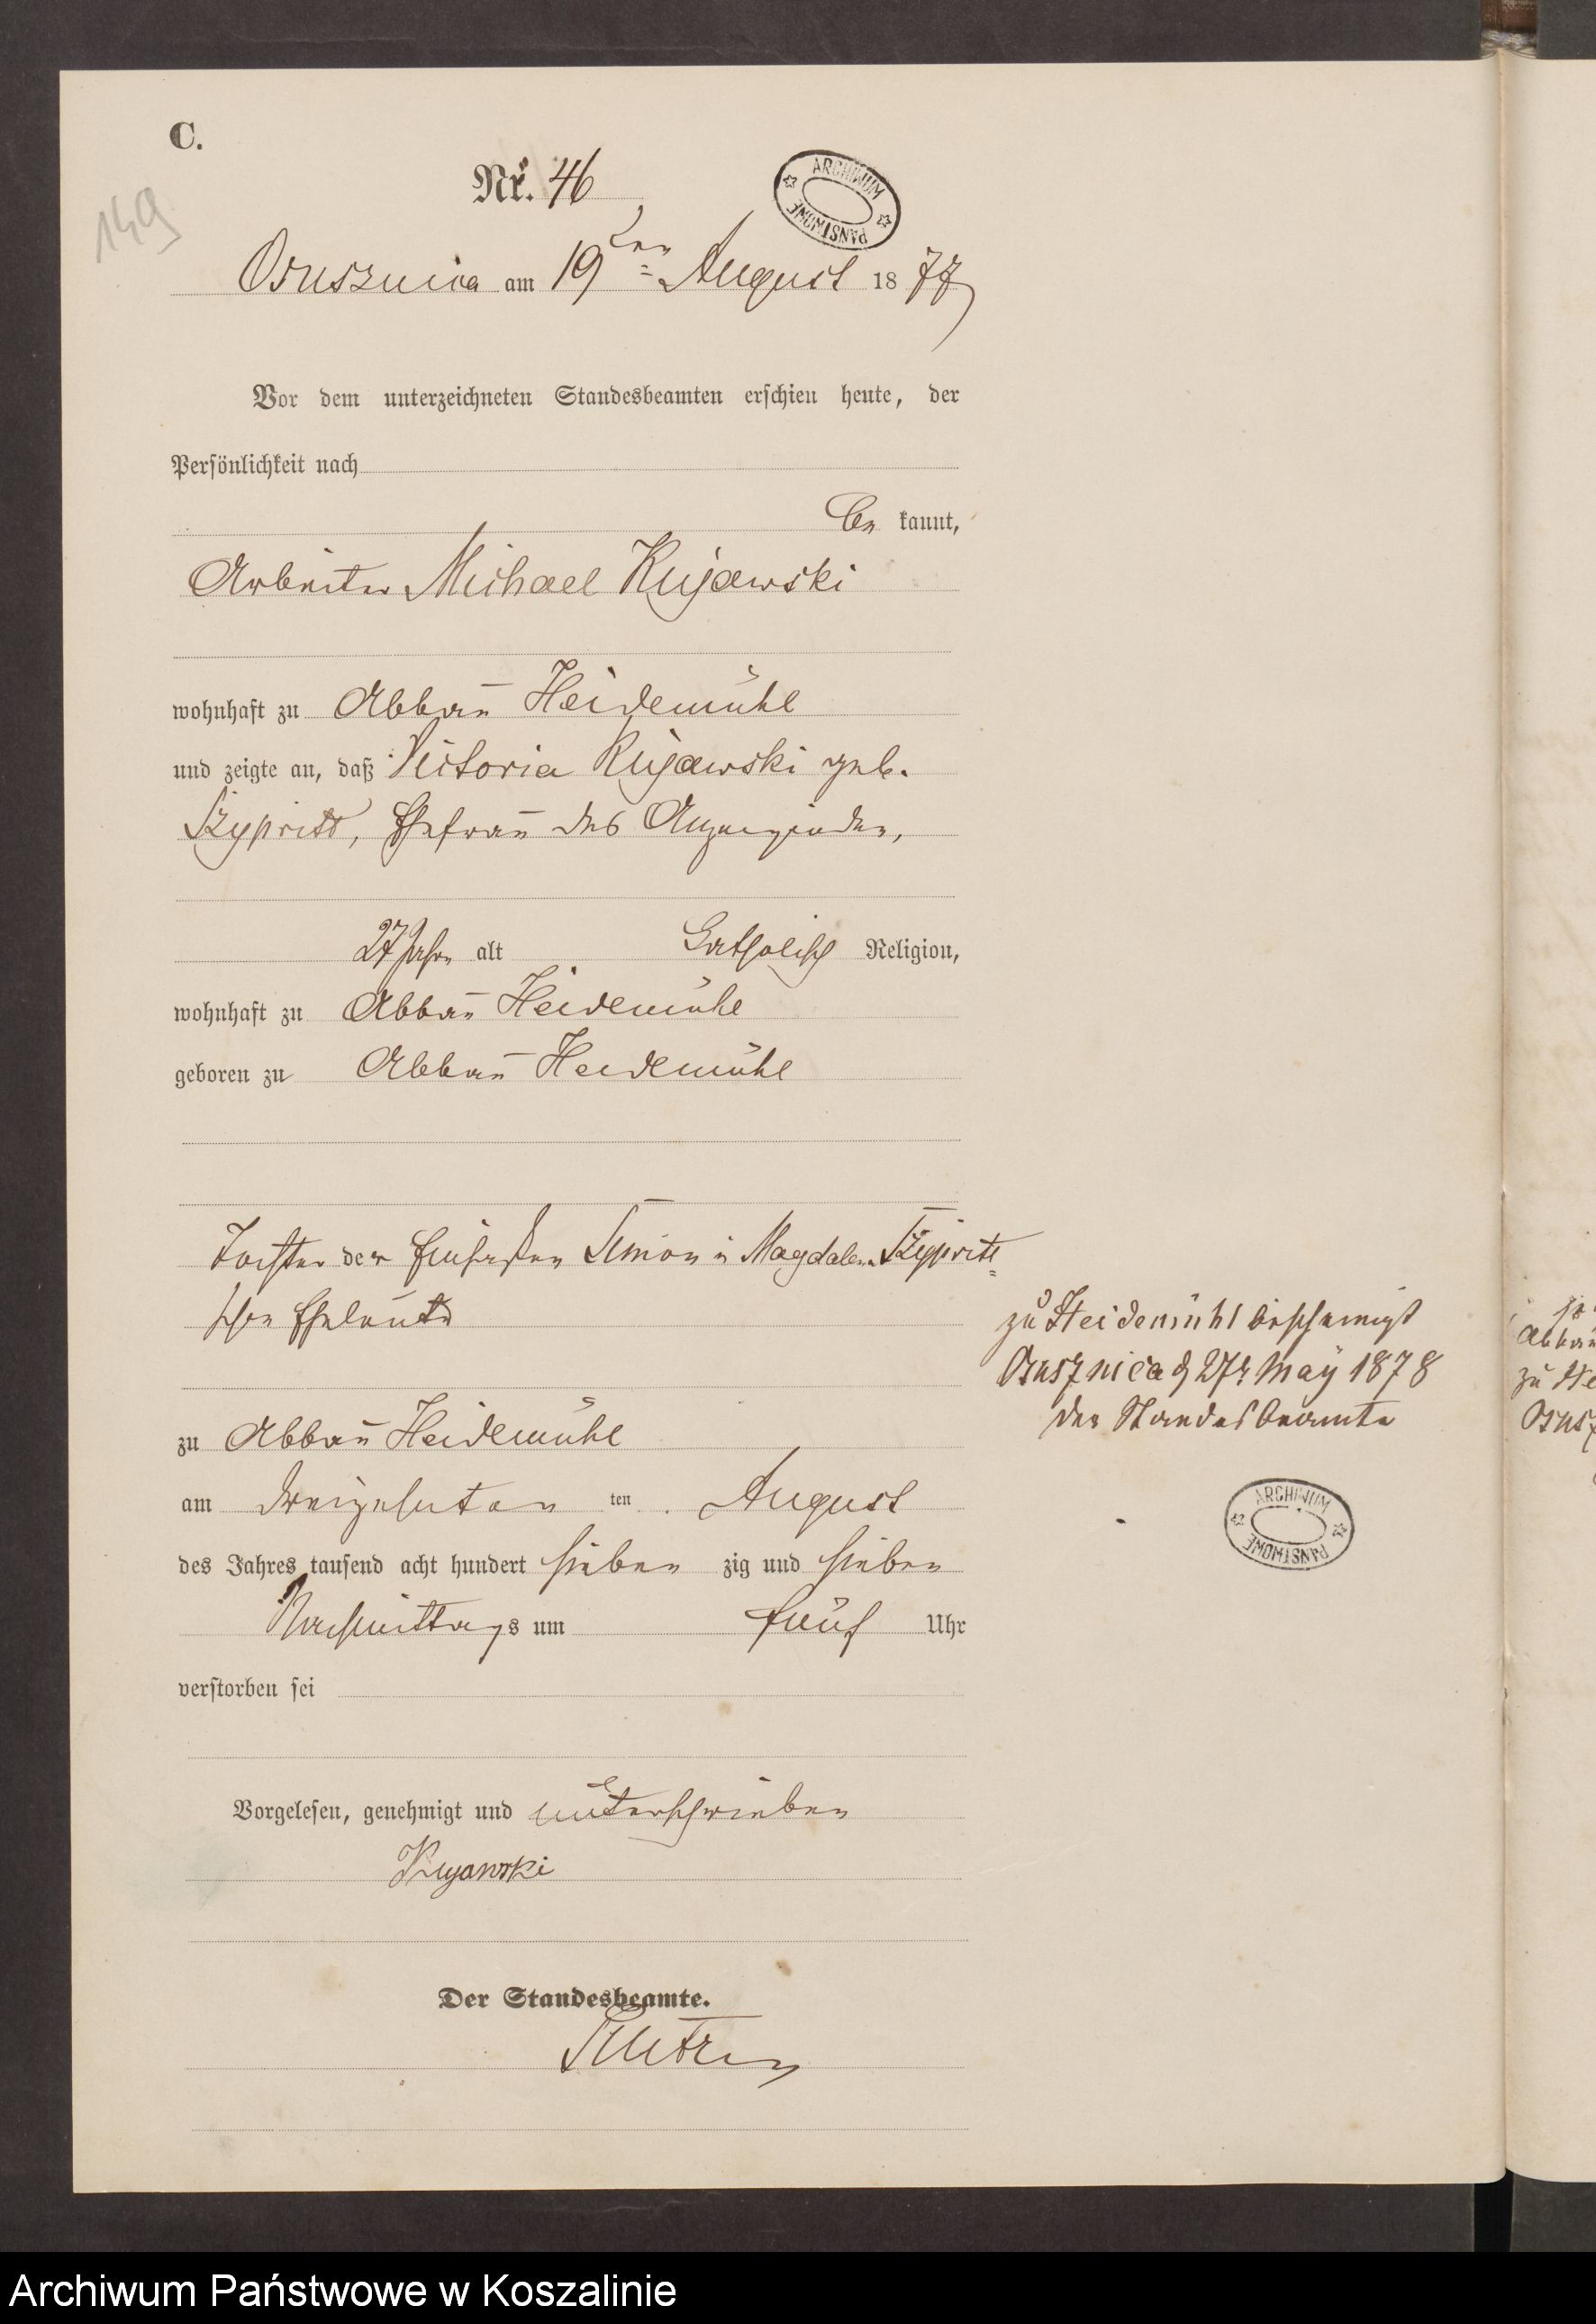 C.
149
Nr. 46
ARCHIWUM PAŃSTWOWE
Osusznica am 19ten August 1877
Vor dem unterzeichneten Standesbeamten erschien heute, der
Persönlichkeit nach
be kannt,
Arbeiter Michael Kujawski
wohnhaft zu Abbau Heidemühl
und zeigte an, daß Victoria Kujawski geb.
Szypritt, Ehefrau des Anzeigenden,
27 Jahre alt Catholisch Religion,
wohnhaft zu Abbau Heidemühl
geboren zu Abbau Heidemühl
Tochter der Einsaßen Simon u Magdalena Szypritt=
schen Eheleute
zu Heidemühl bescheinigt
Osusznica d 27t May 1878
der Standesbeamte
zu Abbau Heidemühl
am dreizehnten ten August
des Jahres tausend acht hundert sieben zig und sieben
Nachmittags um fünf Uhr
verstorben sei
ARCHIWUM PAŃSTWOWE
Vorgelesen, genehmigt und unterschrieben
Kujawski
Der Standesbeamte.
Archiwum Państwowe w Koszalinie